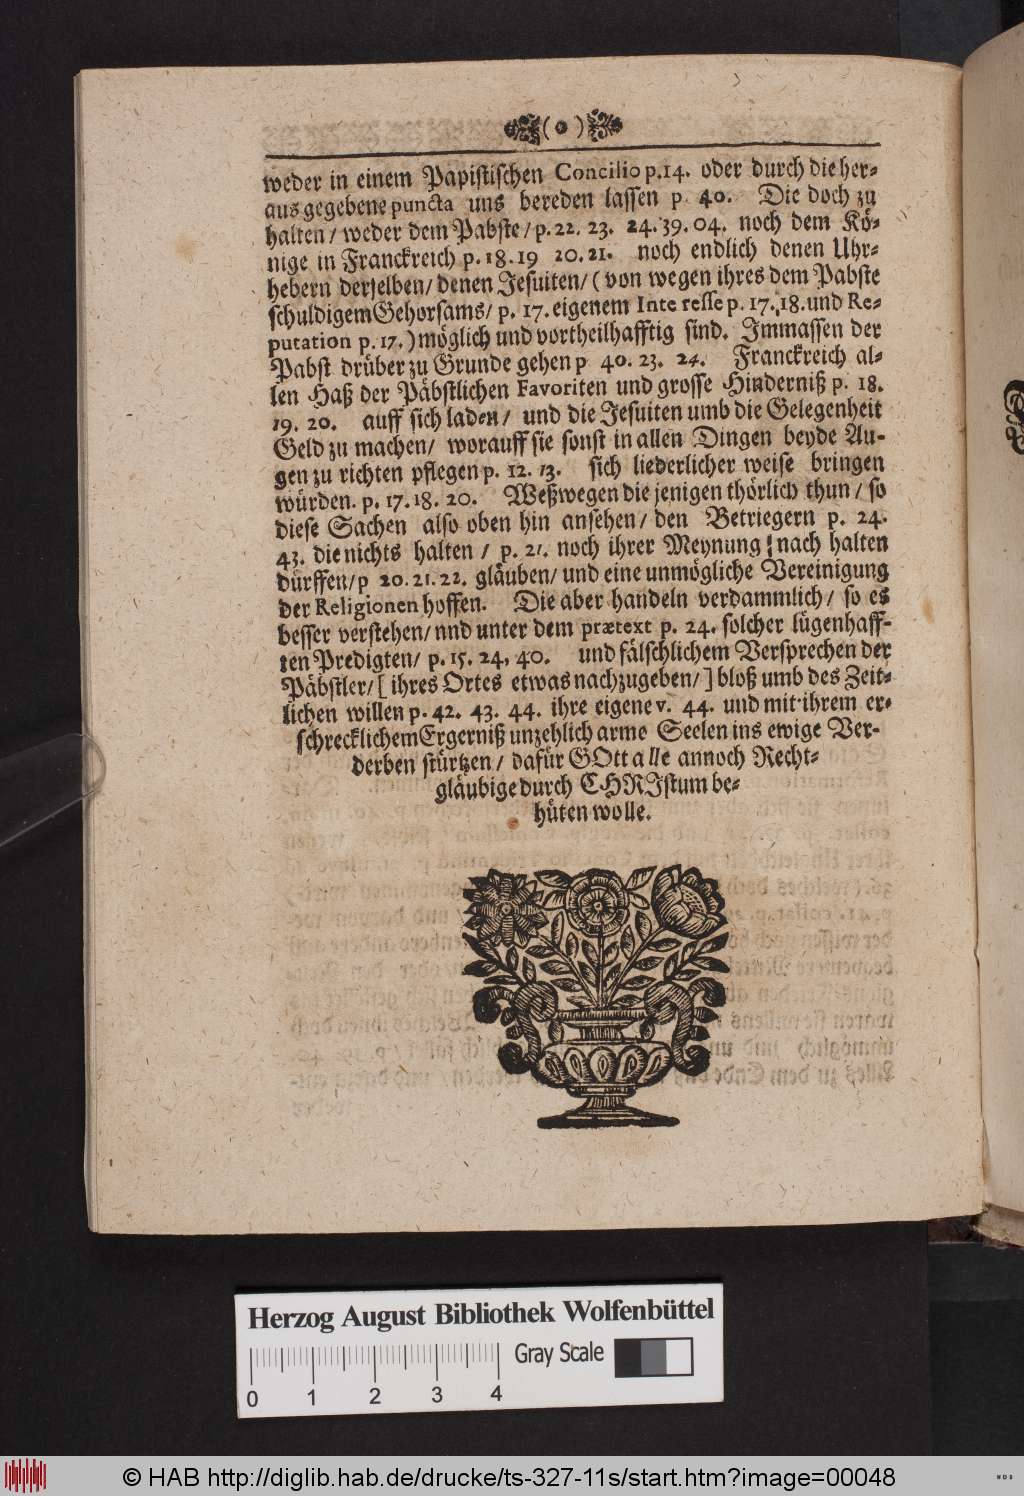 ( o )
weder in einem Papistischen Concilio p.14. oder durch die her-
aus gegebene puncta uns bereden lassen p 40. Die doch zu
halten / weder dem Pabste / p. 22. 23. 24. 39. 04. noch dem Kö-
nige in Franckreich p. 18. 19 20. 21. noch endlich denen Uhr-
hebern derselben / denen Jesuiten / ( von wegen ihres dem Pabste
schuldigem Gehorsams / p. 17. eigenem Inte resse p. 17. 18. und Re-
putation p. 17. ) möglich und vortheilhafftig sind. Immassen der
Pabst drüber zu Grunde gehen p 40. 23. 24. Franckreich al-
len Haß der Päbstlichen Favoriten und grosse Hinderniß p. 18.
19. 20. auff sich laden / und die Jesuiten umb die Gelegenheit
Geld zu machen / worauff sie sonst in allen Dingen beyde Au-
gen zu richten pflegen p. 12. 13. sich liederlicher weise bringen
würden. p. 17. 18. 20. Weßwegen die jenigen thörlich thun / so
diese Sachen also oben hin ansehen / den Betriegern p. 24.
43. die nichts halten / p. 21. noch ihrer Meynung nach halten
dürffen / p 20. 21. 22. gläuben / und eine unmögliche Vereinigung
der Religionen hoffen. Die aber handeln verdammlich / so es
besser verstehen / nnd unter dem prætext p. 24. solcher lügenhaff-
ten Predigten / p. 15. 24, 40. und fälschlichem Versprechen der
Päbstler / [ ihres Ortes etwas nachzugeben / ] bloß umb des Zeit-
lichen willen p. 42. 43. 44. ihre eigene v. 44. und mit ihrem er-
schrecklichem Ergerniß unzehlich arme Seelen ins ewige Ver-
derben stürtzen / dafür GOtt alle annoch Recht-
gläubige durch CHRIstum be-
hüten wolle.
Herzog August Bibliothek Wolfenbüttel
Gray Scale
0 1 2 3 4
© HAB http://diglib.hab.de/drucke/ts-327-11s/start.htm?image=00048